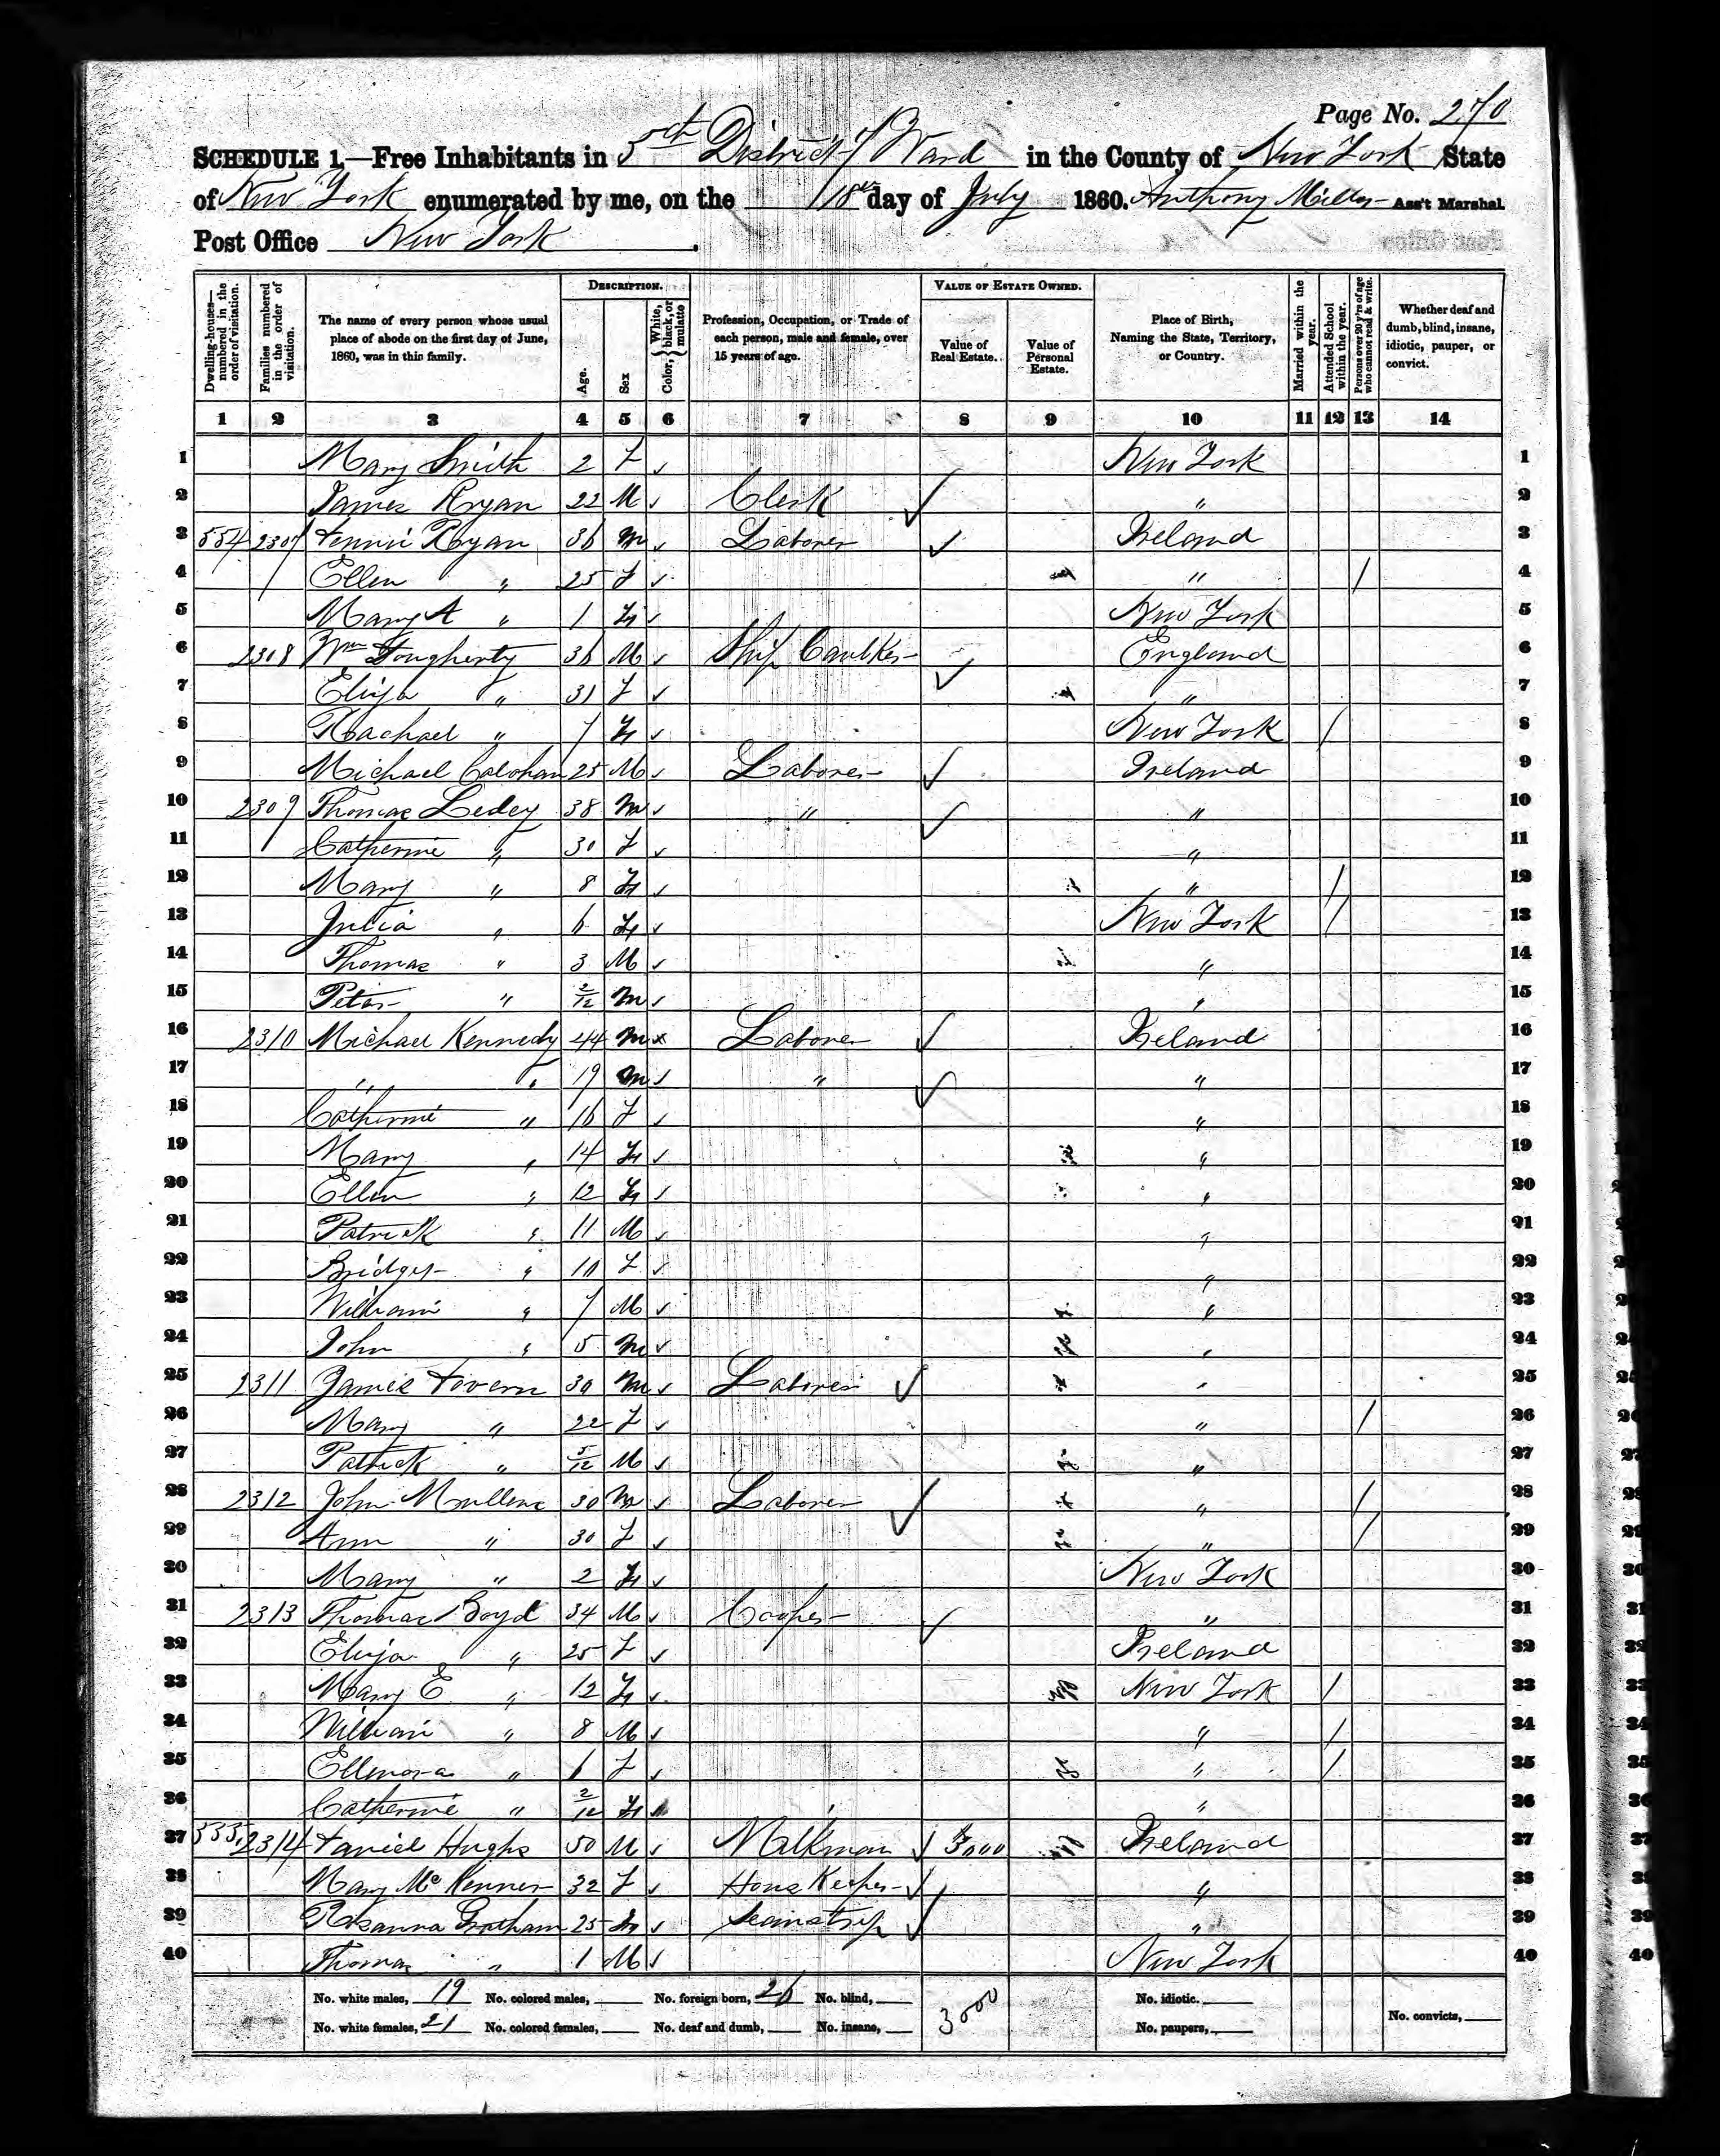 Page No. 270
SCHEDULE 1.—Free Inhabitants in 5th District 7 Ward in the County of New York State
of New York enumerated by me, on the 18th day of July 1860. Anthony Miller Ass't Marshal.
Post Office New York.
DESCRIPTION. VALUE OF ESTATE OWNED.
Dwelling-houses—numbered in the order of visitation. Families numbered in the order of visitation. The name of every person whose usual place of abode on the first day of June, 1860, was in this family. Age. Sex Color, {White, black, or mulatto Profession, Occupation, or Trade of each person, male and female, over 15 years of age. Value of Real Estate. Value of Personal Estate. Place of Birth, Naming the State, Territory, or Country. Married within the year. Attended School within the year. Persons over 20 y'rs of age who cannot read & write. Whether deaf and dumb, blind, insane, idiotic, pauper, or convict.
1 2 3 4 5 6 7 8 9 10 11 12 13 14
1 Mary Smith 2 F ✓ New York 1
2 James Ryan 22 M ✓ Clerk ✓ " 2
3 554 2307 Ryan 36 M ✓ Laborer ✓ Ireland 3
4 Ellen " 25 F ✓ " / 4
5 Mary A " 1 F ✓ New York 5
6 2308 Wm Dougherty 36 M ✓ Ship Caulker ✓ England 6
7 Eliza " 31 F ✓ " 7
8 Rachael " 7 F ✓ New York / 8
9 Michael Calohan 25 M ✓ Laborer ✓ Ireland 9
10 2309 Thomas Ledey 38 M ✓ " ✓ " 10
11 Catherine " 30 F ✓ " 11
12 Mary " 8 F ✓ " / 12
13 Julia " 6 F ✓ New York / 13
14 Thomas " 3 M ✓ " 14
15 Peter " 2/12 M ✓ " 15
16 2310 Michael Kennedy 44 M x Laborer ✓ Ireland 16
17 " " 19 M ✓ " ✓ " 17
18 Catherine " 16 F ✓ " 18
19 Mary " 14 F ✓ " 19
20 Ellen " 12 F ✓ " 20
21 Patrick " 11 M ✓ " 21
22 Bridget " 10 F ✓ " 22
23 William " 7 M ✓ " 23
24 John " 5 M ✓ " 24
25 2311 James 30 M ✓ Laborer ✓ " 25
26 Mary " 22 F ✓ " / 26
27 Patrick " 5/12 M ✓ " 27
28 2312 John Mullens 30 M ✓ Laborer ✓ " / 28
29 Ann " 30 F ✓ " / 29
30 Mary " 2 F ✓ New York 30
31 2313 Thomas Boyd 34 M ✓ Cooper ✓ " 31
32 Eliza " 25 F ✓ Ireland 32
33 Mary E " 12 F ✓ New York / 33
34 William " 8 M ✓ " / 34
35 Ellenora " 6 F ✓ " / 35
36 Catherine " 2/12 F " 36
37 2314 Daniel Hughs 50 M ✓ Milkman ✓ 3000 Ireland 37
38 Mary McKenner 32 F ✓ Hous Keeper ✓ " 38
39 Rosanna Graham 25 F ✓ Seamstress ✓ " 39
40 Thomas " 1 M ✓ New York 40
No. white males, 19 No. colored males, No. foreign born, 26 No. blind, 3000 No. idiotic. No. convicts,
No. white females, 21 No. colored females, No. deaf and dumb, No. insane, No. paupers,